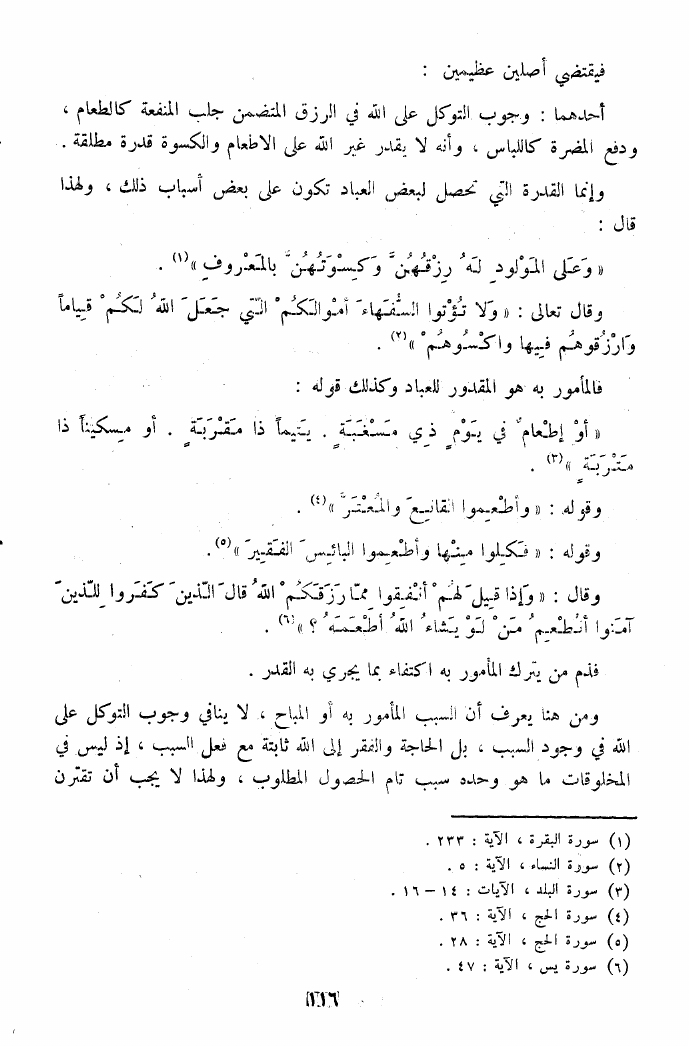 فيقتضي أصلين عظيمين :
أحدهما : وجوب التوكل على الله في الرزق المتضمن جلب المنفعة كالطعام ،
ودفع المضرة كاللباس ، وأنه لا يقدر غير الله على الاطعام والكسوة قدرة مطلقة .
وإنما القدرة التي تحصل لبعض العباد تكون على بعض أسباب ذلك ، ولهذا
قال :
« وَعَلى المَوْلودِ لَهُ رِزْقُهُنَّ وَكِسْوَتُهُنَّ بالمَعْروفِ »(١) .
وقال تعالى : « وَلا تُؤْتوا السُّفَهاءَ أمْوالَكُمْ الّتي جَعَلَ اللهُ لَكُمْ قِياماً
وَارْزُقوهُم فيها واكْسُوهُمْ »(٢) .
فالمأمور به هو المقدور للعباد وكذلك قوله :
« أوْ إطْعامٌ في يَوْمٍ ذي مَسْغَبَةٍ . يَتيماً ذا مَقْرَبَةٍ . أو مِسكيناً ذا
مَتْرَبَةٍ »(٣) .
وقوله : « وأطْعِموا القانِعَ والمُعْتَرَّ »(٤) .
وقوله : « فَكُلوا مِنْها وأطْعِموا البائِسَ الفَقيرَ »(٥).
وقال : « وَإذا قيلَ لهُمْ أنْفِقوا مِمّا رَزَقَكُمْ اللهُ قالَ الّذينَ كَفَروا لِلّذينَ
آمَنوا أنُطْعِمُ مَنْ لَوْ يَشاءُ اللهُ أطْعَمَهُ ؟ »(٦) .
فذم من يترك المأمور به اكتفاء بما يجري به القدر .
ومن هنا يعرف أن السبب المأمور به أو المباح ، لا ينافي وجوب التوكل على
الله في وجود السبب ، بل الحاجة والفقر إلى الله ثابتة مع فعل السبب ، إذ ليس في
المخلوقات ما هو وحده سبب تام الحصول المطلوب ، ولهذا لا يجب أن تقترن
(١) سورة البقرة ، الآية : ٢٣٣ .
(٢) سورة النساء ، الآية : ٥ .
(٣) سورة البلد ، الآيات : ١٤ – ١٦ .
(٤) سورة الحج ، الآية : ٣٦ .
(٥) سورة الحج ، الآية : ٢٨ .
(٦) سورة يس ، الآية : ٤٧ .